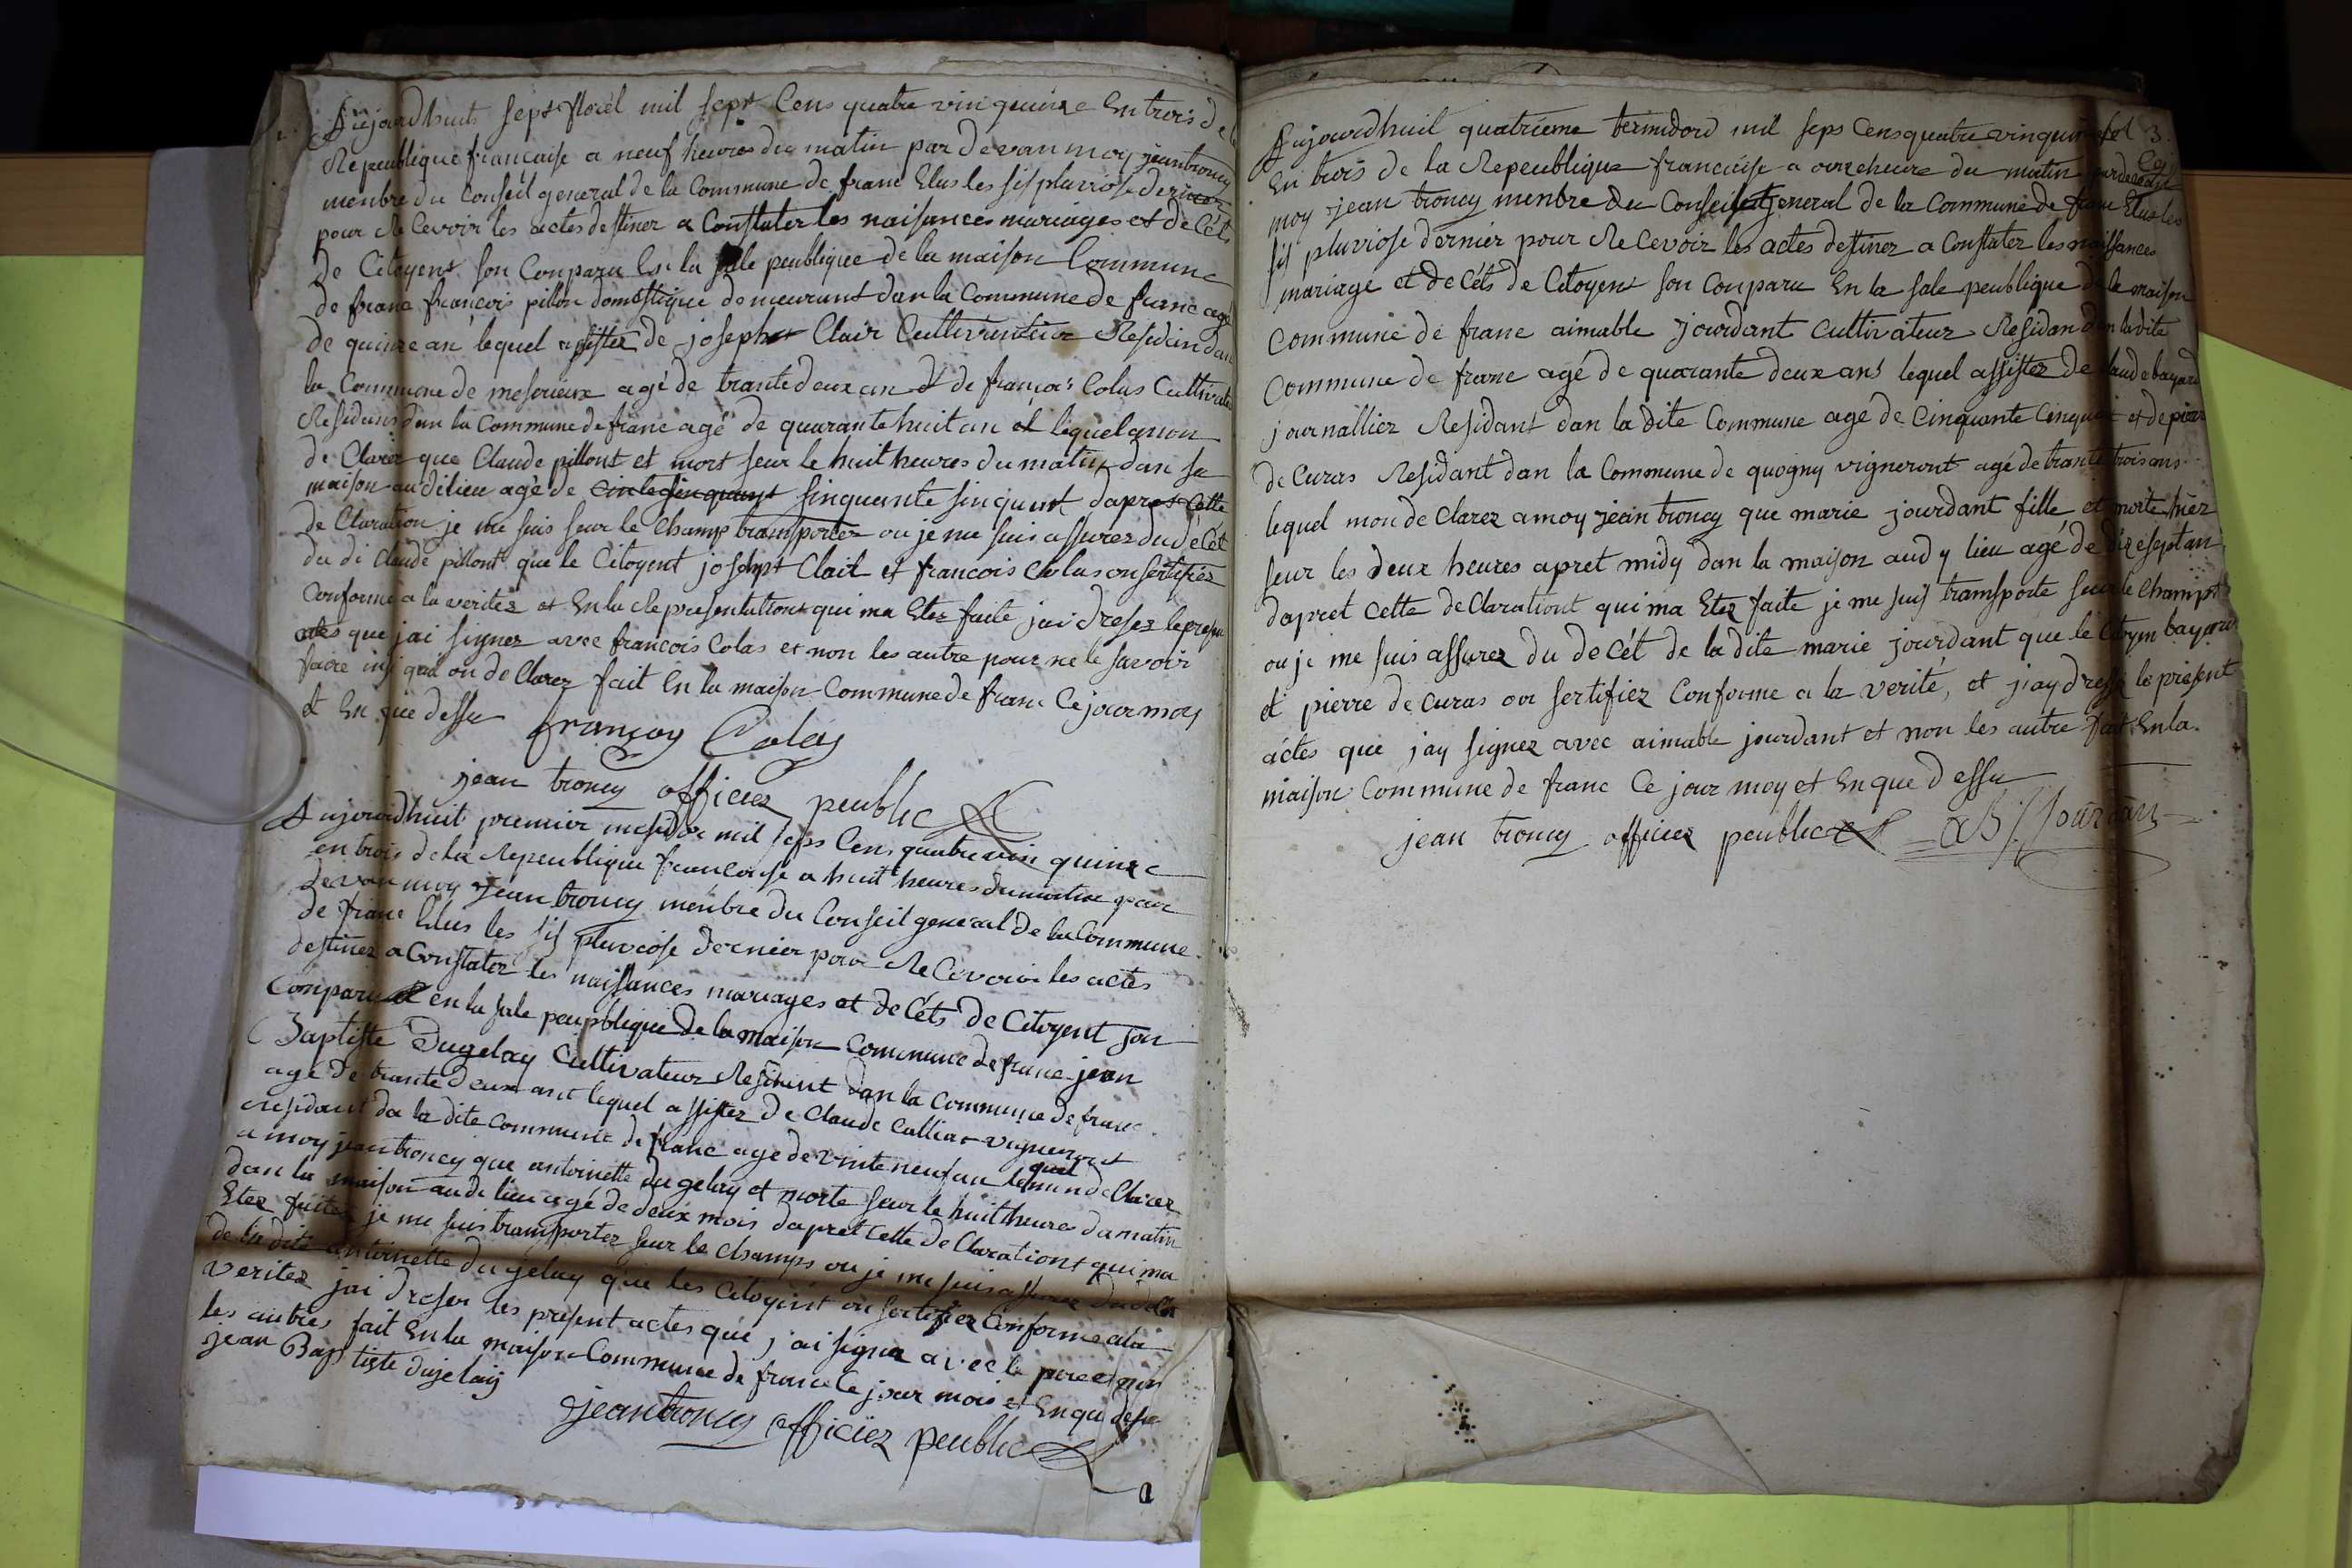 Aujourdhuit sept floréal mil sept Cens quatre vin quinze En trois de la
Republique française a neuf heures du matin par devan moy jean troncy
menbre du Conseil general de la Commune de franc Elus les sis pluviose dernier
pour Recevoir les actes destinez a Constater les naisances mariages et deCéts
de Citoyent son Conparu En la sale peublique de la maison Commune
de franc françois pillon domestique demeurant dan la Commune de franc agé
de quinze an lequel assistez de joseph Clair Cultivateur Residan dan
la Commune de meserieux agé de trante deux an et de françois Colas Cultivateur
Residans dan la Commune de franc agé de quarante huit an et lequel mon
de Clarez que Claude pillont et mort seur le huit heures du matin dan sa
maison au di lieu agé de sinquante sinq ant dapret Cette
de Claration je me suis seur le Champs transportez ou je me suis assurez du déCét
du di Claude pillont que le Citoyent joseph Clair et francois Colas on sertifiéz
Conforme a la veritez et En la Representationt qui ma Etez faite jai dresez le present
actes que jai signez avec francois Colas et non les autre pour ne le savoir
faire insi quil on de Clarez fait En la maison Commune de franc Ce jour moy
et En que dessu françoy Colas
jean troncy officiez peublic
Aujourdhuit premier mesidor mil seps Cens quatre vin quinze
en trois de la Republique francaise a huit heures du matin par
devan moy jean troncy menbre du Conseil general de la Commune
de franc Elus les sis pluviose dernier pour ReCevoir les actes
destinez a Constatez les naissances mariages et deCéts de Citoyent son
Comparu en la sale peupblique de la maison Commune de franc jean
Baptiste Dugelay Cultivateur Resident dan la Commune de franc
agé de trante deux ant lequel assistez de Claude Calliar vigneront
residant da la dite Commune de franc age de vinte neuf an lequel mon de Clarez
a moy jean troncy que antoinette dugelay et morte seur le huit heures du matin
dan la maison au di lieu agé de deux mois dapret cette de Clarationt qui ma
Etez faite je me suis transportez seur le champs ou je me suis assurez du deCét
de la dite antoinette dugelay que les Citoyent on sertifiez Conforme a la
veritez jai dresez les present actes que j'ai signez avec le pere et non
les autres fait En la maison Commune de franc Ce jour mois et En que dessu
jean Baptiste dugelay
jean troncy officiez peublic
fol 3.
Aujourdhuil quatriéme termidord mil seps Cens quatre vin quinze
En trois de la Repeublique francaise a onze heure du matin par devan
moy jean troncy menbre du Conseil General de la Commune de franc Elus les
sis pluviose dernier pour ReCevoir les actes destinez a Constatez les naissances
mariage et deCéts de Citoyent son Conparu En la sale peublique de la maison
Commune de franc aimable jourdant Cultivateur Residan dan la dite
Commune de franc agé de quarante deux ans lequel assistez de Claude bayard
journalliez Residant dan la dite Commune agé de Cinquante Cinq ant et de pierre
de Curas Residant dan la Commune de quogny vigneront agé de trante trois ans
lequel mon de Clarez a moy jean troncy que marie jourdant fille et morte hiez
seur les deux heures apret midy dan la maison au dy lieu agé de dizesept an
dapret cette de Clarationt qui ma Etez faite je me suis transporte seur le Champst
ou je me suis assurez du deCét de la dite marie jourdant que le Citoyen bayard
et pierre de Curas on sertifiez Conforme a la verité, et j'ay dressé le present
áctes que j'ay signez avec aimable jourdant et non les autre fait En la
maison Commune de franc Ce jour moy et En que dessu
jean troncy officiez peublic Jourdan